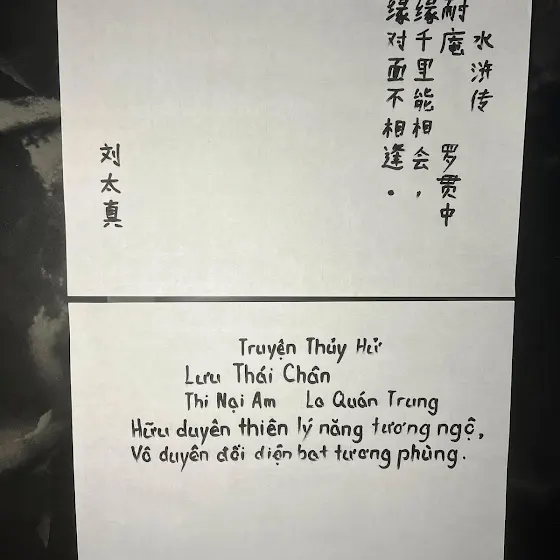 水浒传
耐庵 罗贯中
缘千里能相会，
缘对面不相逢。
刘太真
Truyện Thủy Hử
Lưu Thái Chân
Thi Nại Am La Quán Trung
Hữu duyên thiên lý năng tương ngộ,
Vô duyên đối diện bat tương phùng.